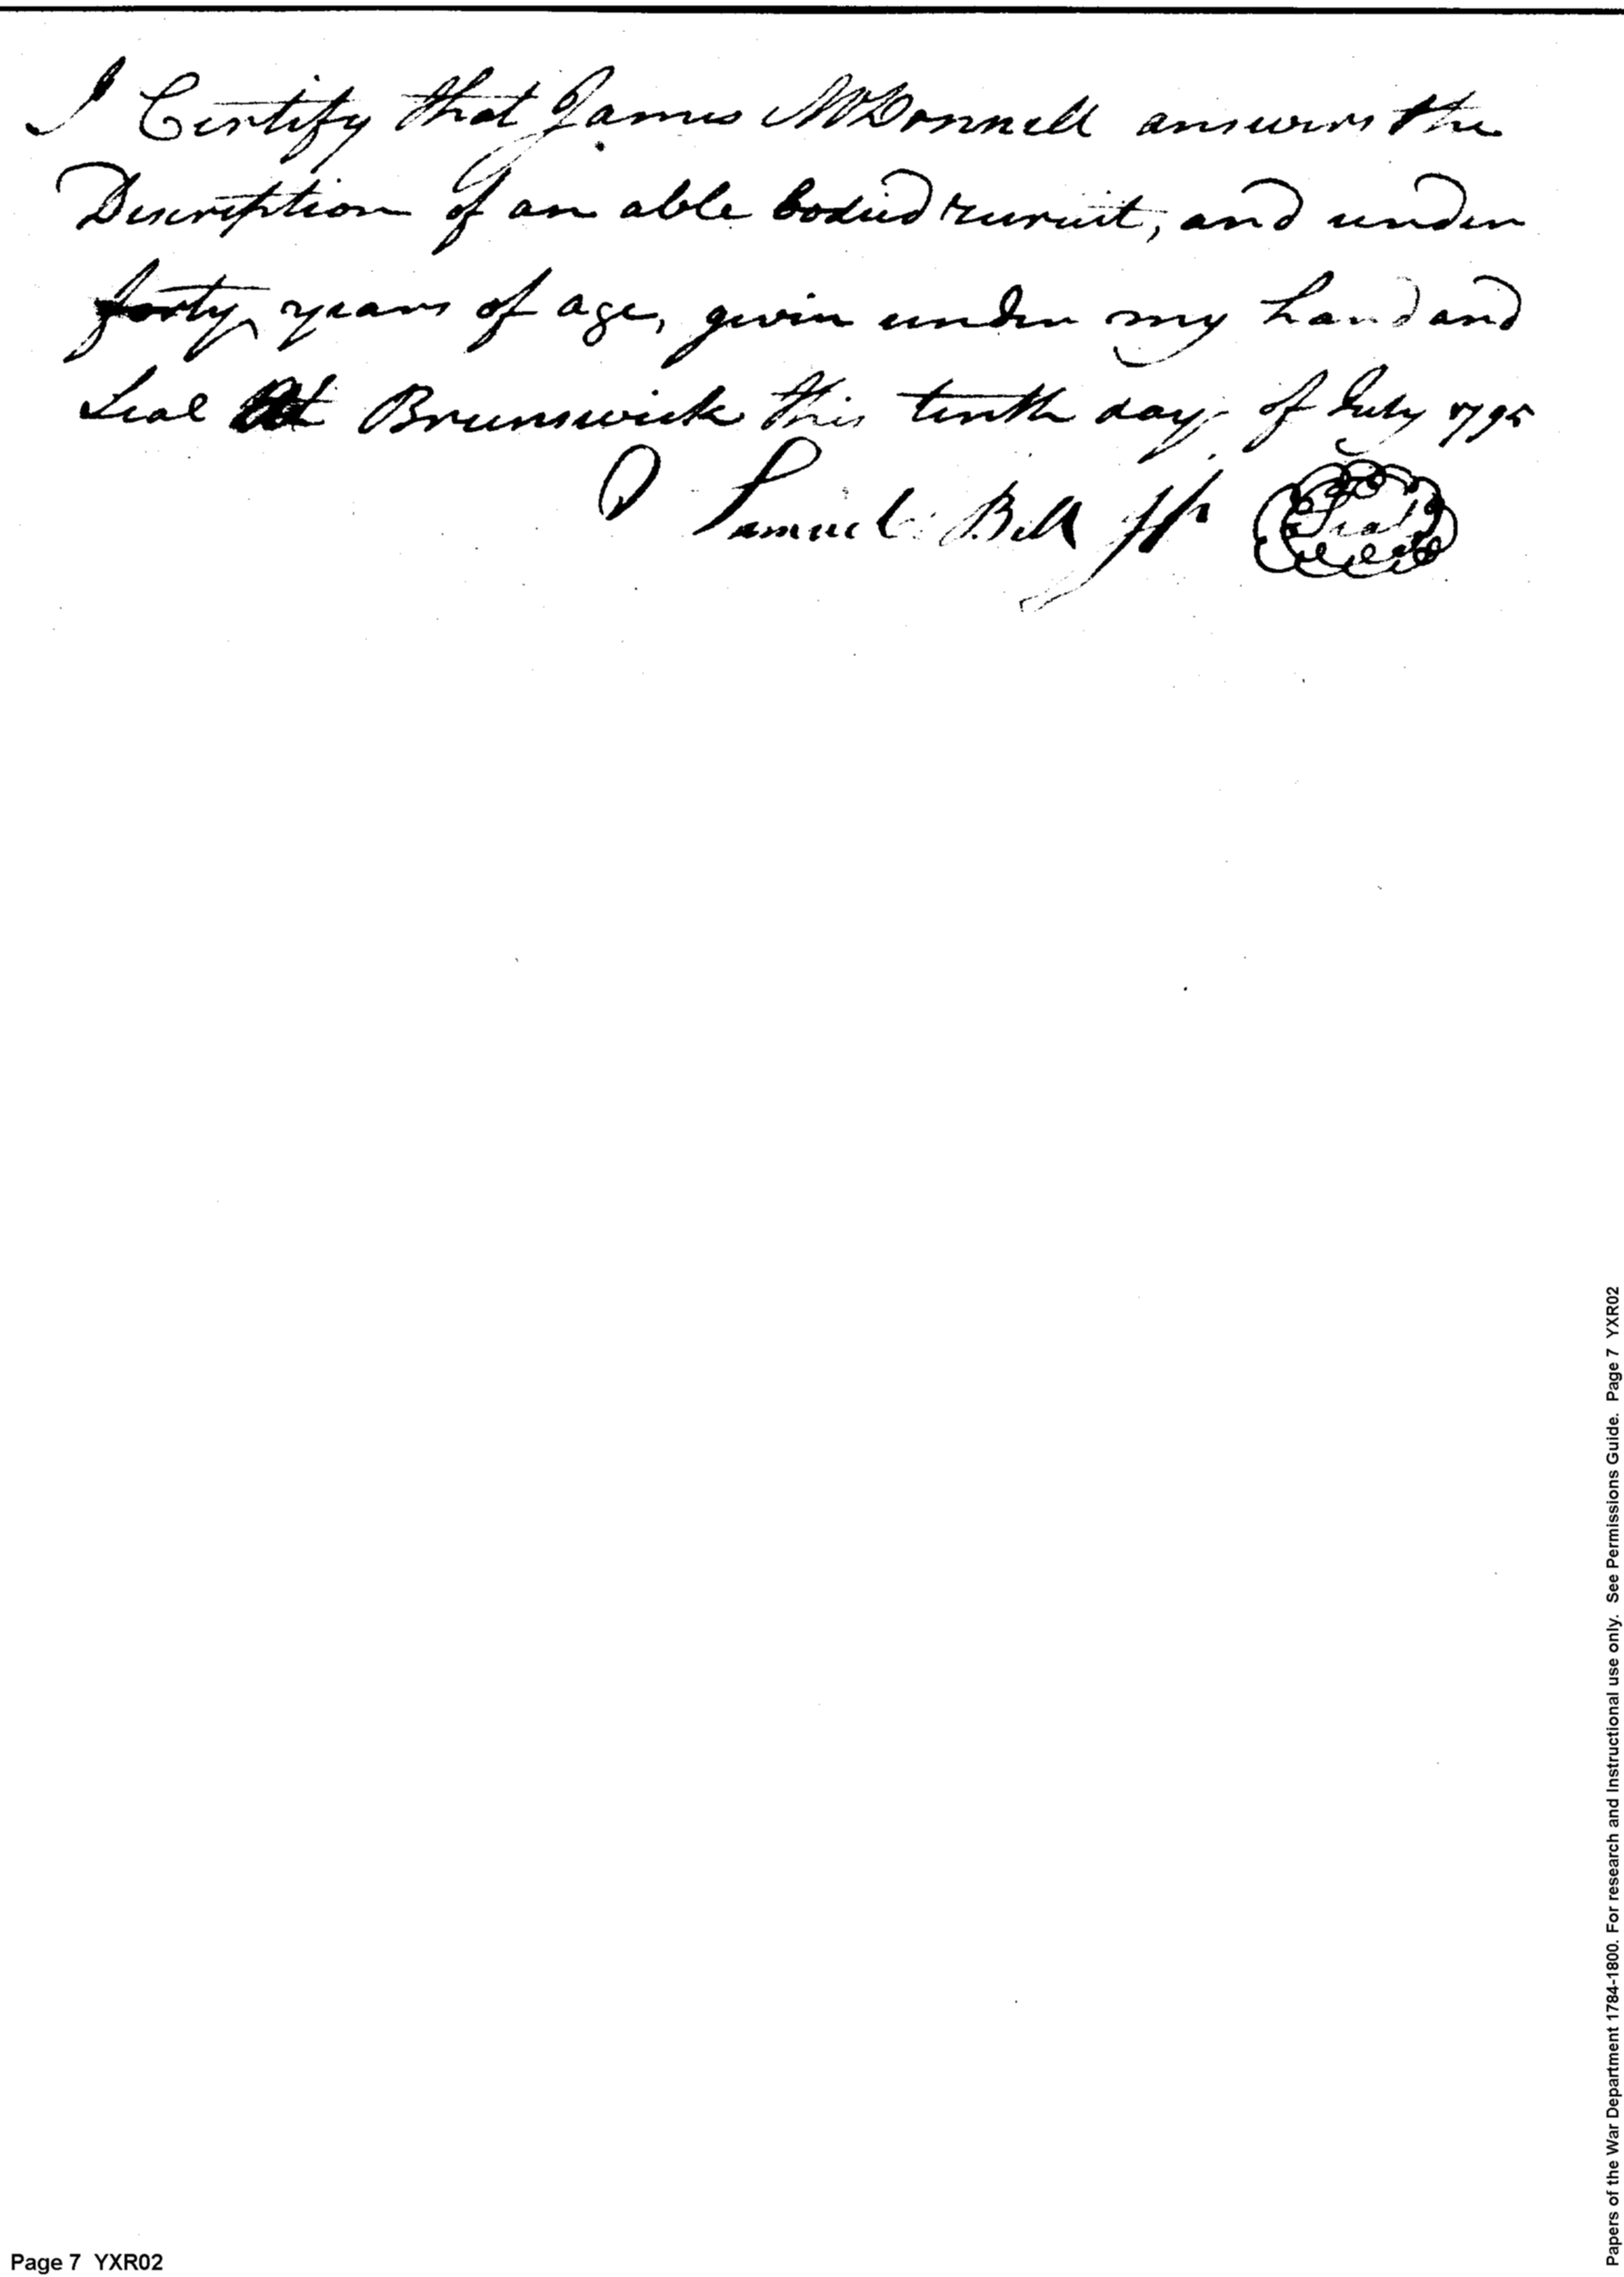 I Certify that James McDonnell answers the
Description of an able bodied recruit, and under
forty years of age, given under my hand and
Seal At Brunswick this tenth day of July 1795
Samuel Bell JP Seal
Papers of the War Department 1784-1800. For research and Instructional use only. See Permissions Guide. Page 7 YXR02
Page 7 YXR02